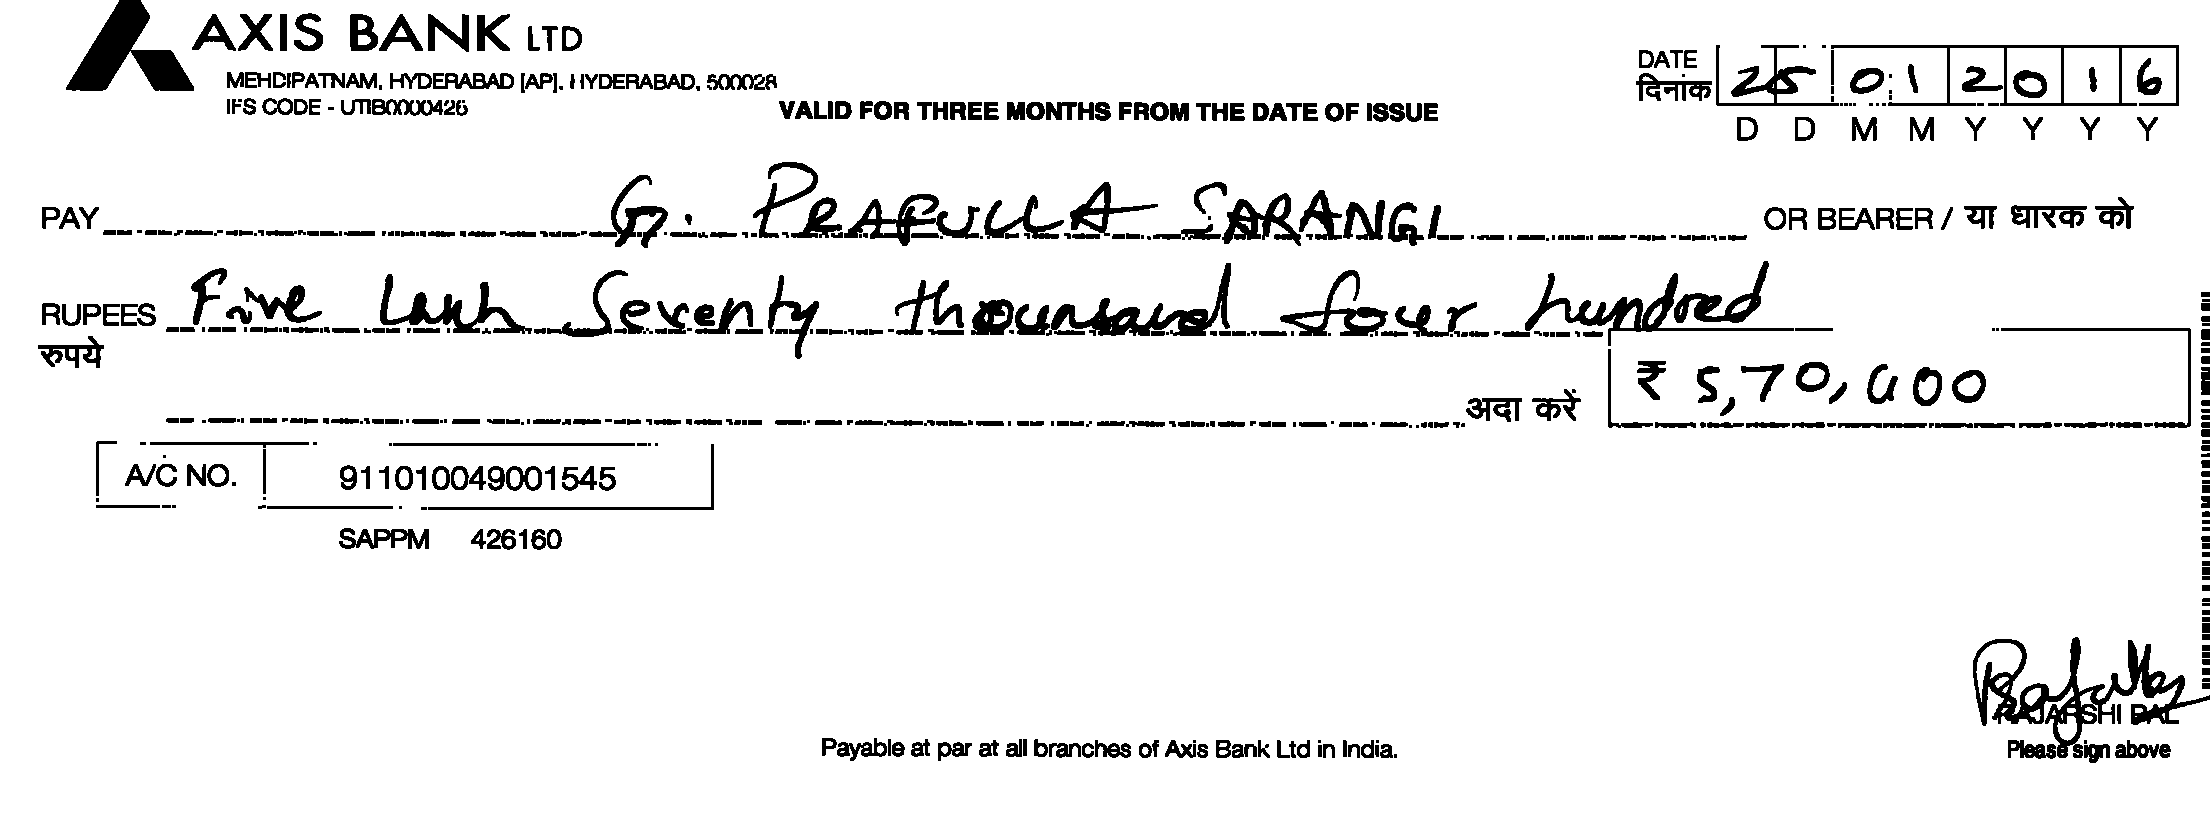 AXIS BANK LTD
MEHDIPATNAM, HYDERABAD [AP], HYDERABAD, 500028
IFS CODE - UTIB0000426
VALID FOR THREE MONTHS FROM THE DATE OF ISSUE
DATE
दिनांक 25012016
D D M M Y Y Y Y
PAY G. PRAFULLA SARANGI OR BEARER / या धारक को
RUPEES Five Lakh Seventy thousand four hundred
रुपये
अदा करें ₹ 5,70,400
A/C NO. 911010049001545
SAPPM 426160
RAJARSHI PAL
Payable at par at all branches of Axis Bank Ltd in India.
Please sign above